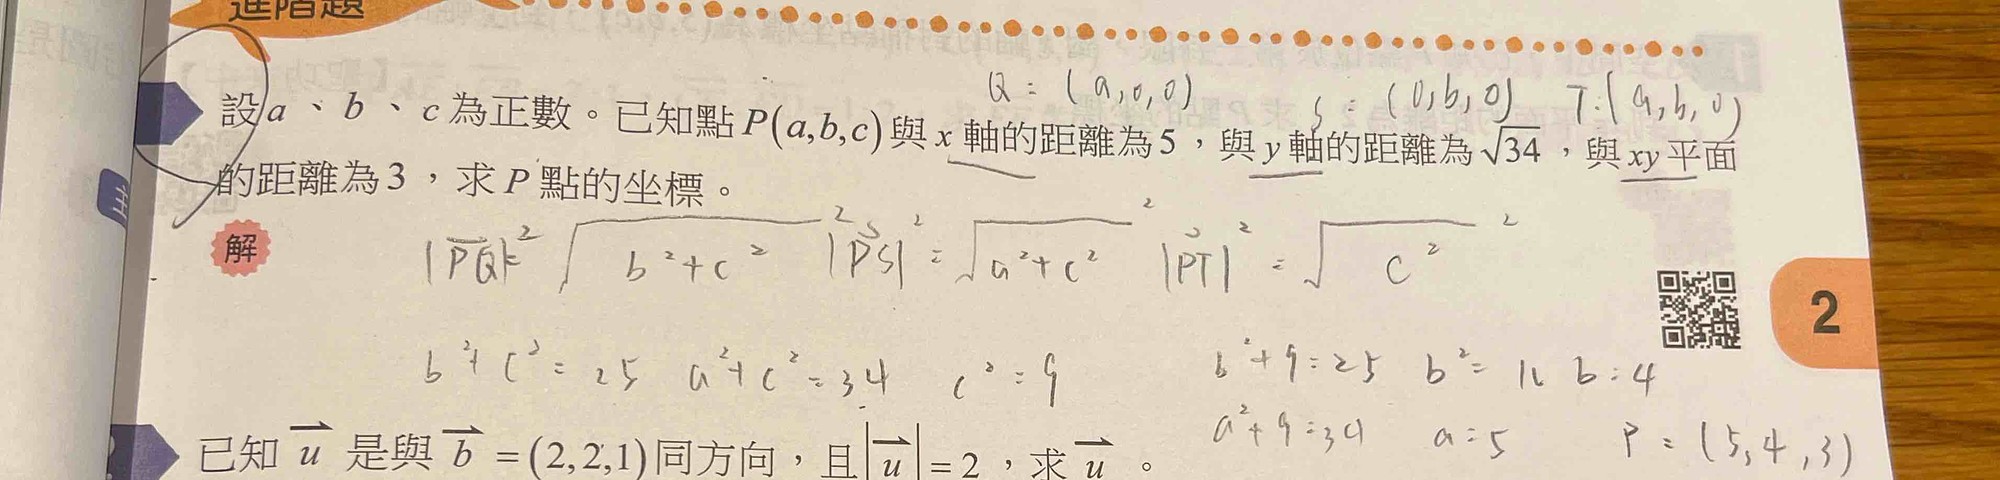 進階題
Q : (a,0,0) S : (0,b,0) T : (a,b,0)
設 a、b、c 為正數。已知點 P(a,b,c) 與 x 軸的距離為 5，與 y 軸的距離為 √34，與 xy 平面
的距離為 3，求 P 點的坐標。
解
|PQ|² = √(b²+c²)² |PS|² = √(a²+c²)² |PT|² = √(c²)²
2
b²+c² = 25 a²+c² = 34 c² = 9 b²+9 = 25 b² = 16 b = 4
a²+9 = 34 a = 5 P = (5,4,3)
已知 u⃗ 是與 b⃗ = (2,2,1) 同方向，且 |u⃗| = 2，求 u⃗。